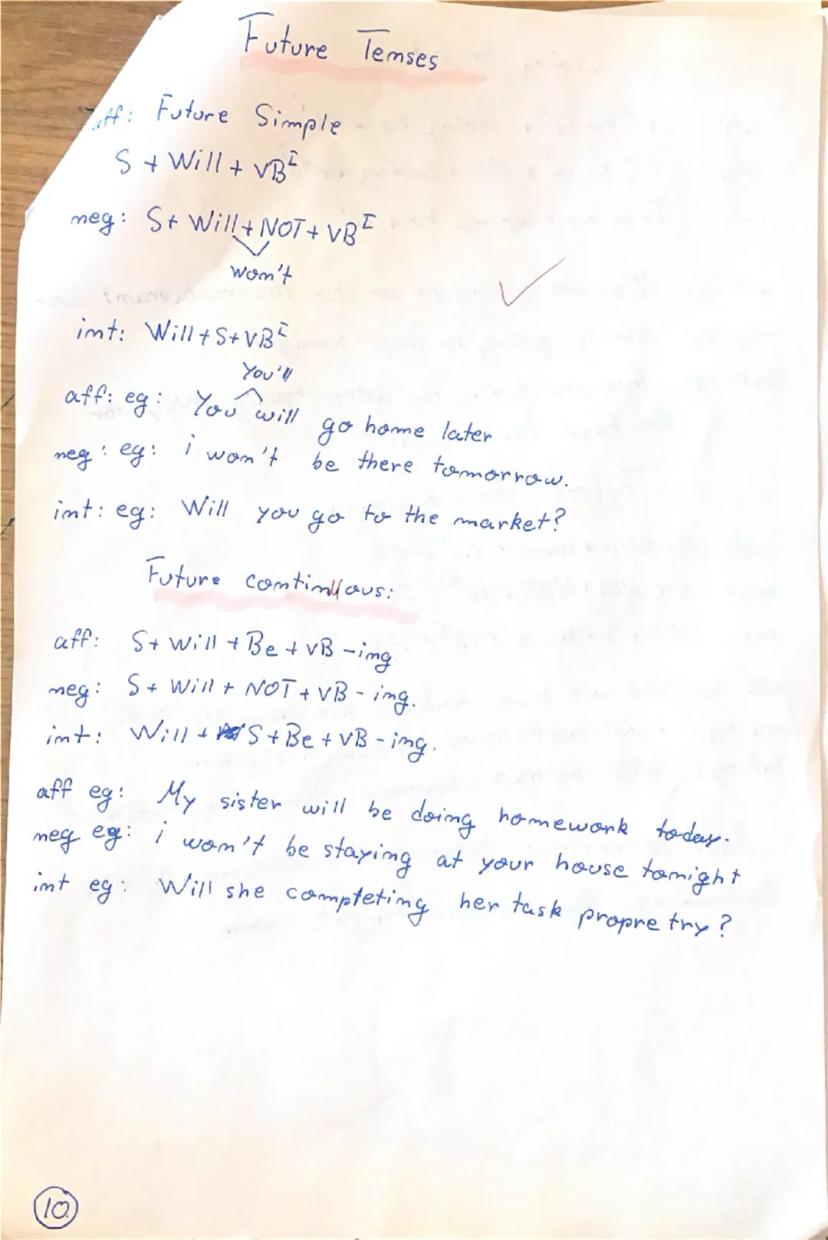 Future Tenses
aff: Future Simple
S + Will + VB I
neg: S + Will + NOT + VB I
won't
int: Will + S + VB I
You'll
aff: eg: You will go home later
neg: eg: i won't be there tomorrow.
int: eg: Will you go to the market?
Future continuous:
aff: S + Will + Be + VB - ing
neg: S + Will + NOT + VB - ing.
int: Will + S + Be + VB - ing.
aff eg: My sister will be doing homework today.
neg eg: i won't be staying at your house tonight
int eg: Will she completing her task propretry?
10